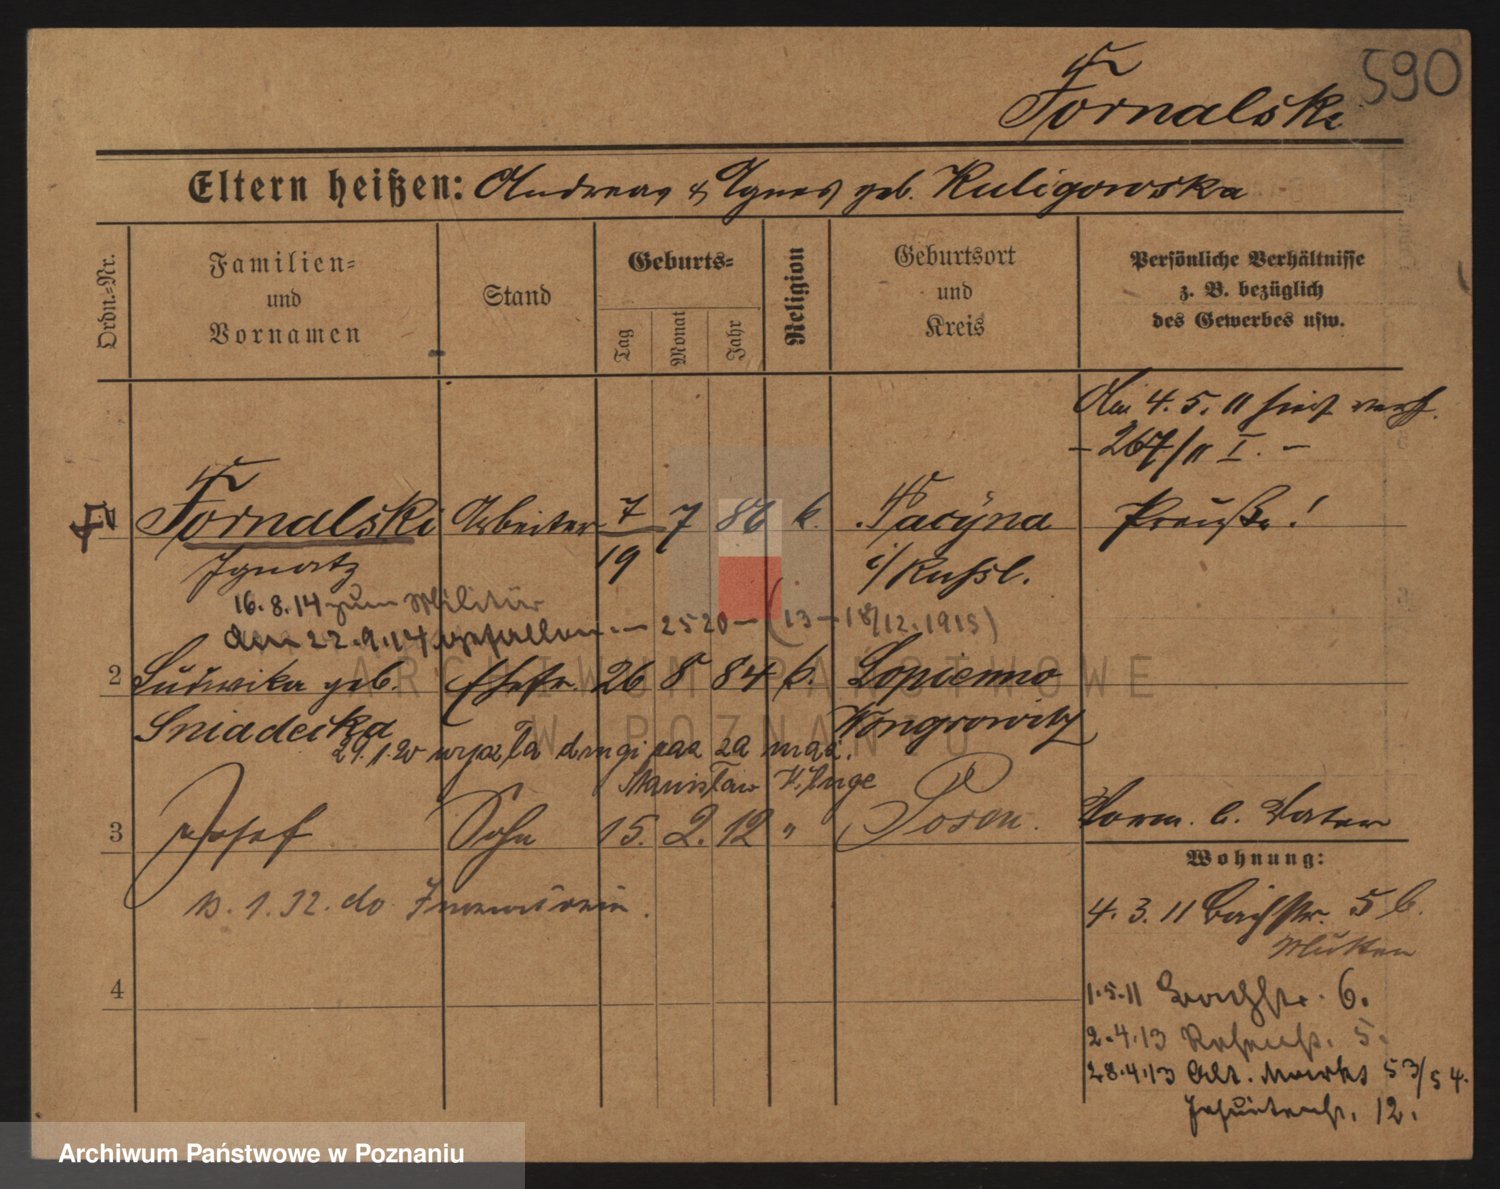 590
Fornalski
Eltern heißen: Andreas & Agnes geb. Kuligowska
Ordn.-Nr.
Familien- und Vornamen
Stand
Geburts-
Tag
Monat
Jahr
Religion
Geburtsort und Kreis
Persönliche Verhältnisse z. B. bezüglich des Gewerbes usw.
Am 4.5.11 hier verh.
- 267/11 I. -
Fornalski Arbeiter 7 7 86 k. Pacyna Preuße!
Ignatz 19 i/ Russl.
16.8.14 zum Militär
am 22.9.14 gefallen. - 2520 - (13 - 18/12.1915)
2 Ludwika geb. Ehefr. 26 8 84 k. Lopienno
Sniadecka Wongrowitz
29.1.20 wyszła drugi raz za mąż.
Stanisław
3 Josef Sohn 15. 2. 12 " Posen. Vorm. b. Vater
Wohnung:
13.1.32. do
4.3.11 Bachstr. 5 b.
4
1.5.11 Bachstr. 6.
2.4.13 5.
28.4.13 Alt. Markt 53/54.
Jesuitenstr. 12.
ARCHIWUM PAŃSTWOWE
W POZNANIU
Archiwum Państwowe w Poznaniu